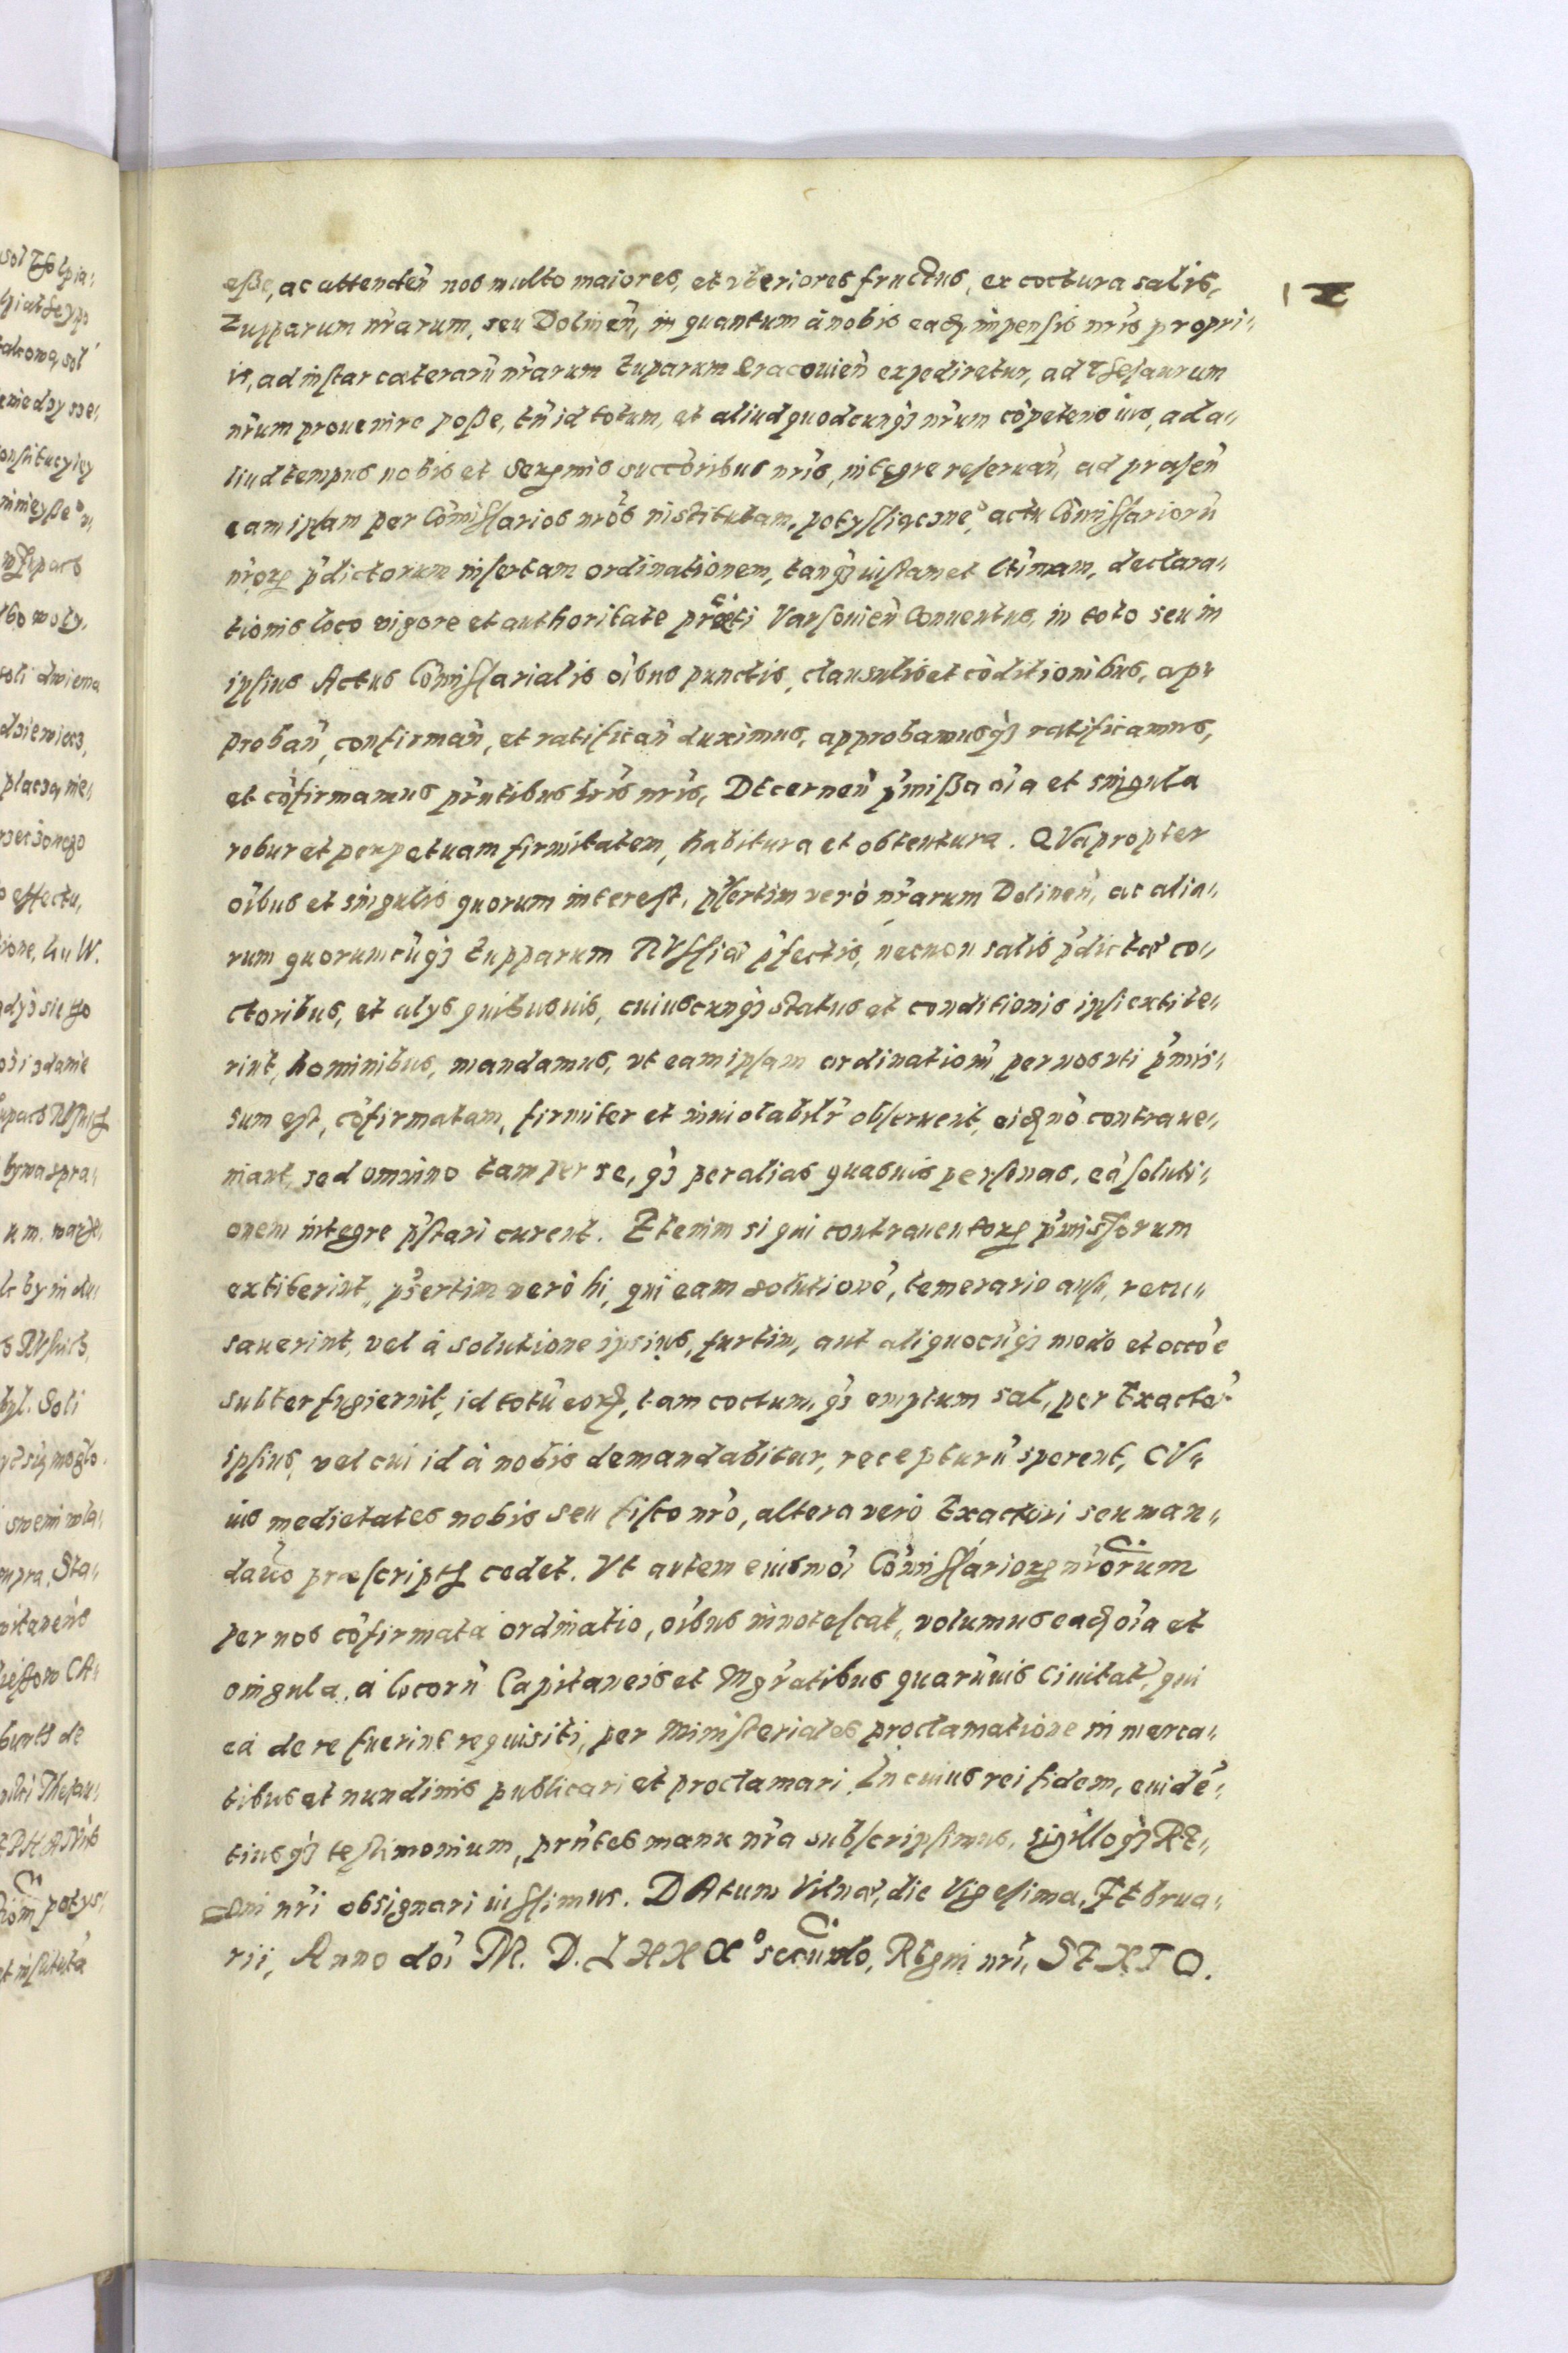 eße, ac attendeñ nos multo maiores, et vlteriores fructus, ex coctura salis,
Zupparum nr̃arum, seu Dolineñ, in quantum à nobis eadẽ impensis nr̃is propri-
is, ad instar cæterarũ nr̃arum Zuparum Cracouieñ expediretur, ad Thesaurum
nr̃um prouenire poße, tñ id totum, et aliud quodcunq3 nr̃um cõpetens ius, ad a-
liud tempus nobis et Serenis succõribus nr̃is, integre reseruañ, ad præseñ
eam ipsam per Cõmissarios nr̃os institutam, actu Cõmissariorũ
nr̃orꝝ p̃dictorum insertam ordinationem, tanq3 iustam et ltimam, declara-
tionis loco vigore et authoritate Varsouieñ Conuentus, in toto seu in
ipsius Actus Cõmissarialis oĩbus punctis, clausulis et cõditionibus, ap-
probañ, confirmañ, et ratificañ duximus, approbamusq3 ratificamus,
et cõfirmamus pr̃ntibus lr̃is nr̃is, Decerneñ p̃mißa oĩa et singula
robur et perpetuam firmitatem, habitura et obtentura. QVapropter
oĩbus et singulis quorum interest, p̃sertim verò nr̃arum Dolineñ, ac alia-
rum quorumcũq3 Zupparum RVssiæ p̃fectis, necnon salis p̃dictæ co-
ctoribus, et alys quibusuis, cuiuscunq3 status et conditionis ipsi extite-
rint, hominibus, mandamus, vt eam ipsam ordinationẽ per nos vti p̃mis-
sum est, cõfirmatam, firmiter et inuiolabilr̃ obseruent, eidẽ nõ contraue-
niant, sed omnino tam per se, q̃3 per alias quasuis personas, eã soluti-
onem integre p̃stari curent. Etenim si qui contrauentorꝝ p̃missorum
extiterint, p̃sertim verò hi, qui eam solutionẽ, temerario ausu, recu-
sauerint, vel à solutione ipsius, furtim, aut aliquocũq3 modo et occõe
subterfugierint, id totũ eorꝝ, tam coctum, q̃3 emptum sal, per Exactõr
ipsius, vel cui id à nobis demandabitur, recepturũ sperent, CV-
ius medietates nobis seu fisco nr̃o, altera verò Exactori seu man-
datõ præscripto cedet. Vt autem eiusmõi Cõmissariorꝝ nr̃orum
per nos cõfirmata ordinatio, oĩbus innotescat, volumus eadẽ oĩa et
singula, à locorũ Capitaneis et Mgr̃atibus quarũuis Ciuitatũ, qui
eà de re fuerint requisiti, per Ministeriales proclamatione in merca-
tibus et nundinis publicari et proclamari. In cuius rei fidem, euidẽ-
tiusq3 testimonium, pr̃ntes manu nr̃a subscripsimus, sigilloq3 RE-
gni nr̃i obsignari iussimus. DAtum Vilnæ, die Vigesima, Februa-
rii, Anno doĩ M. D. LXXXº secundo, Regni nr̃i, SEXTO.